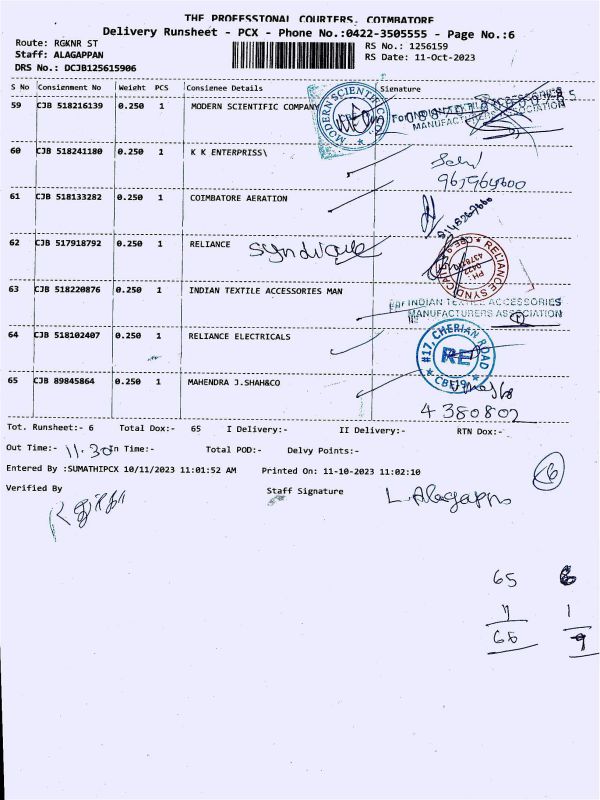 THE PROFESSIONAL COURIERS, COIMBATORE
Delivery Runsheet - PCX - Phone No.:0422-3505555 - Page No.:6
Route: RGKNR ST
RS No.: 1256159
Staff: ALAGAPPAN
RS Date: 11-Oct-2023
DRS No.: DCJB125615906
S No Consignment No Weight PCS Consignee Details Signature
59 CJB 518216139 0.250 1 MODERN SCIENTIFIC COMPANY
MODERN SCIENTIFIC
For INDIAN TEXTILE ACCESSORIES
MANUFACTURERS ASSOCIATION
60 CJB 518241180 0.250 1 K K ENTERPRISS\
61 CJB 518133282 0.250 1 COIMBATORE AERATION
62 CJB 517918792 0.250 1 RELIANCE syndicate
RELIANCE SYNDICATE
PH: 0422
63 CJB 518220876 0.250 1 INDIAN TEXTILE ACCESSORIES MAN
For INDIAN TEXTILE ACCESSORIES
MANUFACTURERS ASSOCIATION
64 CJB 518102407 0.250 1 RELIANCE ELECTRICALS
#17, CHERIAN ROAD
RE
CBE 19
65 CJB 89845864 0.250 1 MAHENDRA J.SHAH&CO
4380802
Tot. Runsheet:- 6 Total Dox:- 65 I Delivery:- II Delivery:- RTN Dox:-
Out Time:- 11.30 In Time:- Total POD:- Delvy Points:-
Entered By :SUMATHIPCX 10/11/2023 11:01:52 AM Printed On: 11-10-2023 11:02:10
6
Verified By Staff Signature L. Alagappn
65 6
1 1
66